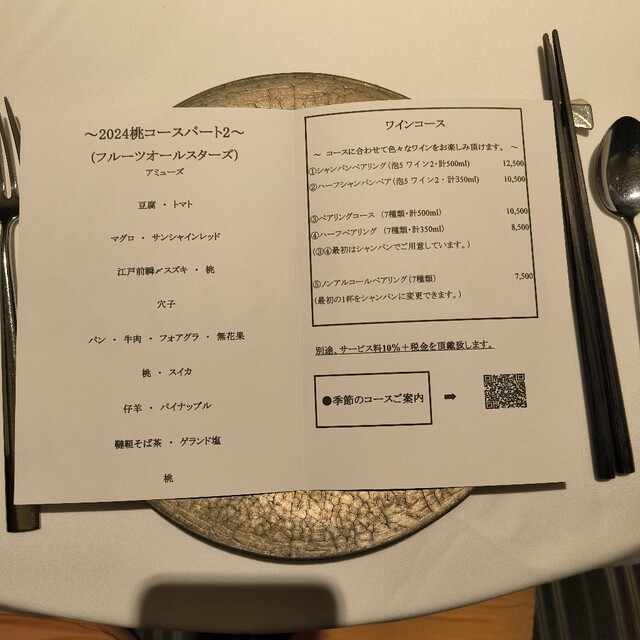 ～2024桃コースパート2～
(フルーツオールスターズ)
アミューズ
豆腐 ・ トマト
マグロ ・ サンシャインレッド
江戸前瞬〆スズキ ・ 桃
穴子
パン ・ 牛肉 ・ フォアグラ ・ 無花果
桃 ・ スイカ
仔羊 ・ パイナップル
韃靼そば茶 ・ ゲランド塩
桃
ワインコース
～ コースに合わせて色々なワインをお楽しみ頂けます。 ～
①シャンパンペアリング(泡5 ワイン2・計500ml) 12,500
②ハーフシャンパンペア(泡5 ワイン2・計350ml) 10,500
③ペアリングコース (7種類・計500ml) 10,500
④ハーフペアリング (7種類・計350ml) 8,500
(③④最初はシャンパンでご用意しています。)
⑤ノンアルコールペアリング(7種類) 7,500
(最初の1杯をシャンパンに変更できます。)
別途、サービス料10%＋税金を頂戴致します。
●季節のコースご案内 ➡